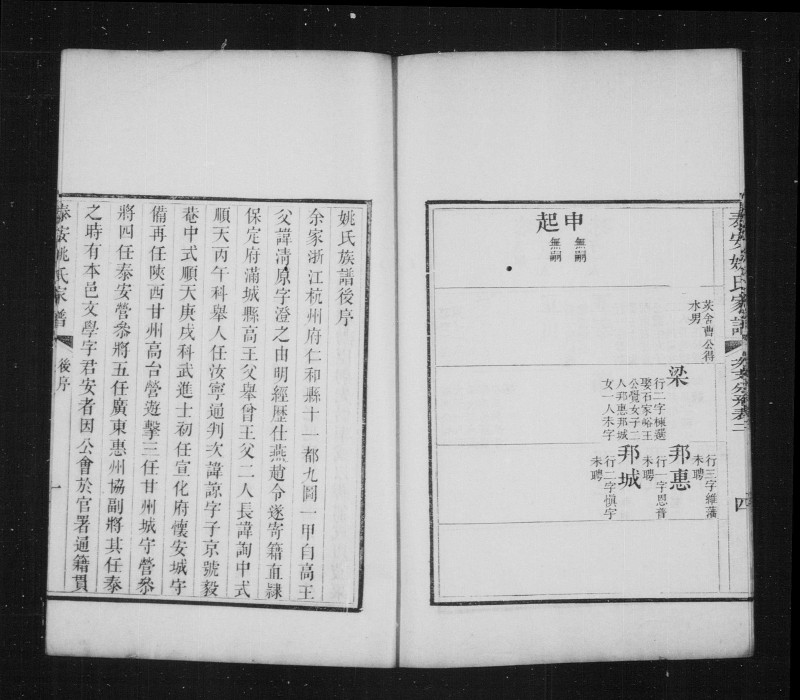 泰安姚氏家譜
四
申
無嗣
起
無嗣
茨舍曹公得
水男
梁
行二字棟選
娶石家峪王
公覺女子二
人邦惠邦城
女一人未字
行三字維藩
未聘
邦惠
行一字思普
未聘
邦城
行二字慎宇
未聘
姚氏族譜後序
余家浙江杭州府仁和縣十一都九圖一甲自高王
父諱清原字澄之由明經歷仕燕趙令遂寄籍直隸
保定府滿城縣高王父舉曾王父二人長諱詢中式
順天丙午科舉人任汝寧通判次諱諒字子京號毅
菴中式順天庚戌科武進士初任宣化府懷安城守
備再任陝西甘州高台營遊擊三任甘州城守營叅
將四任泰安營叅將五任廣東惠州協副將其任泰
之時有本邑文學字君安者因公會於官署通籍貫
泰安姚氏家譜
後序
一